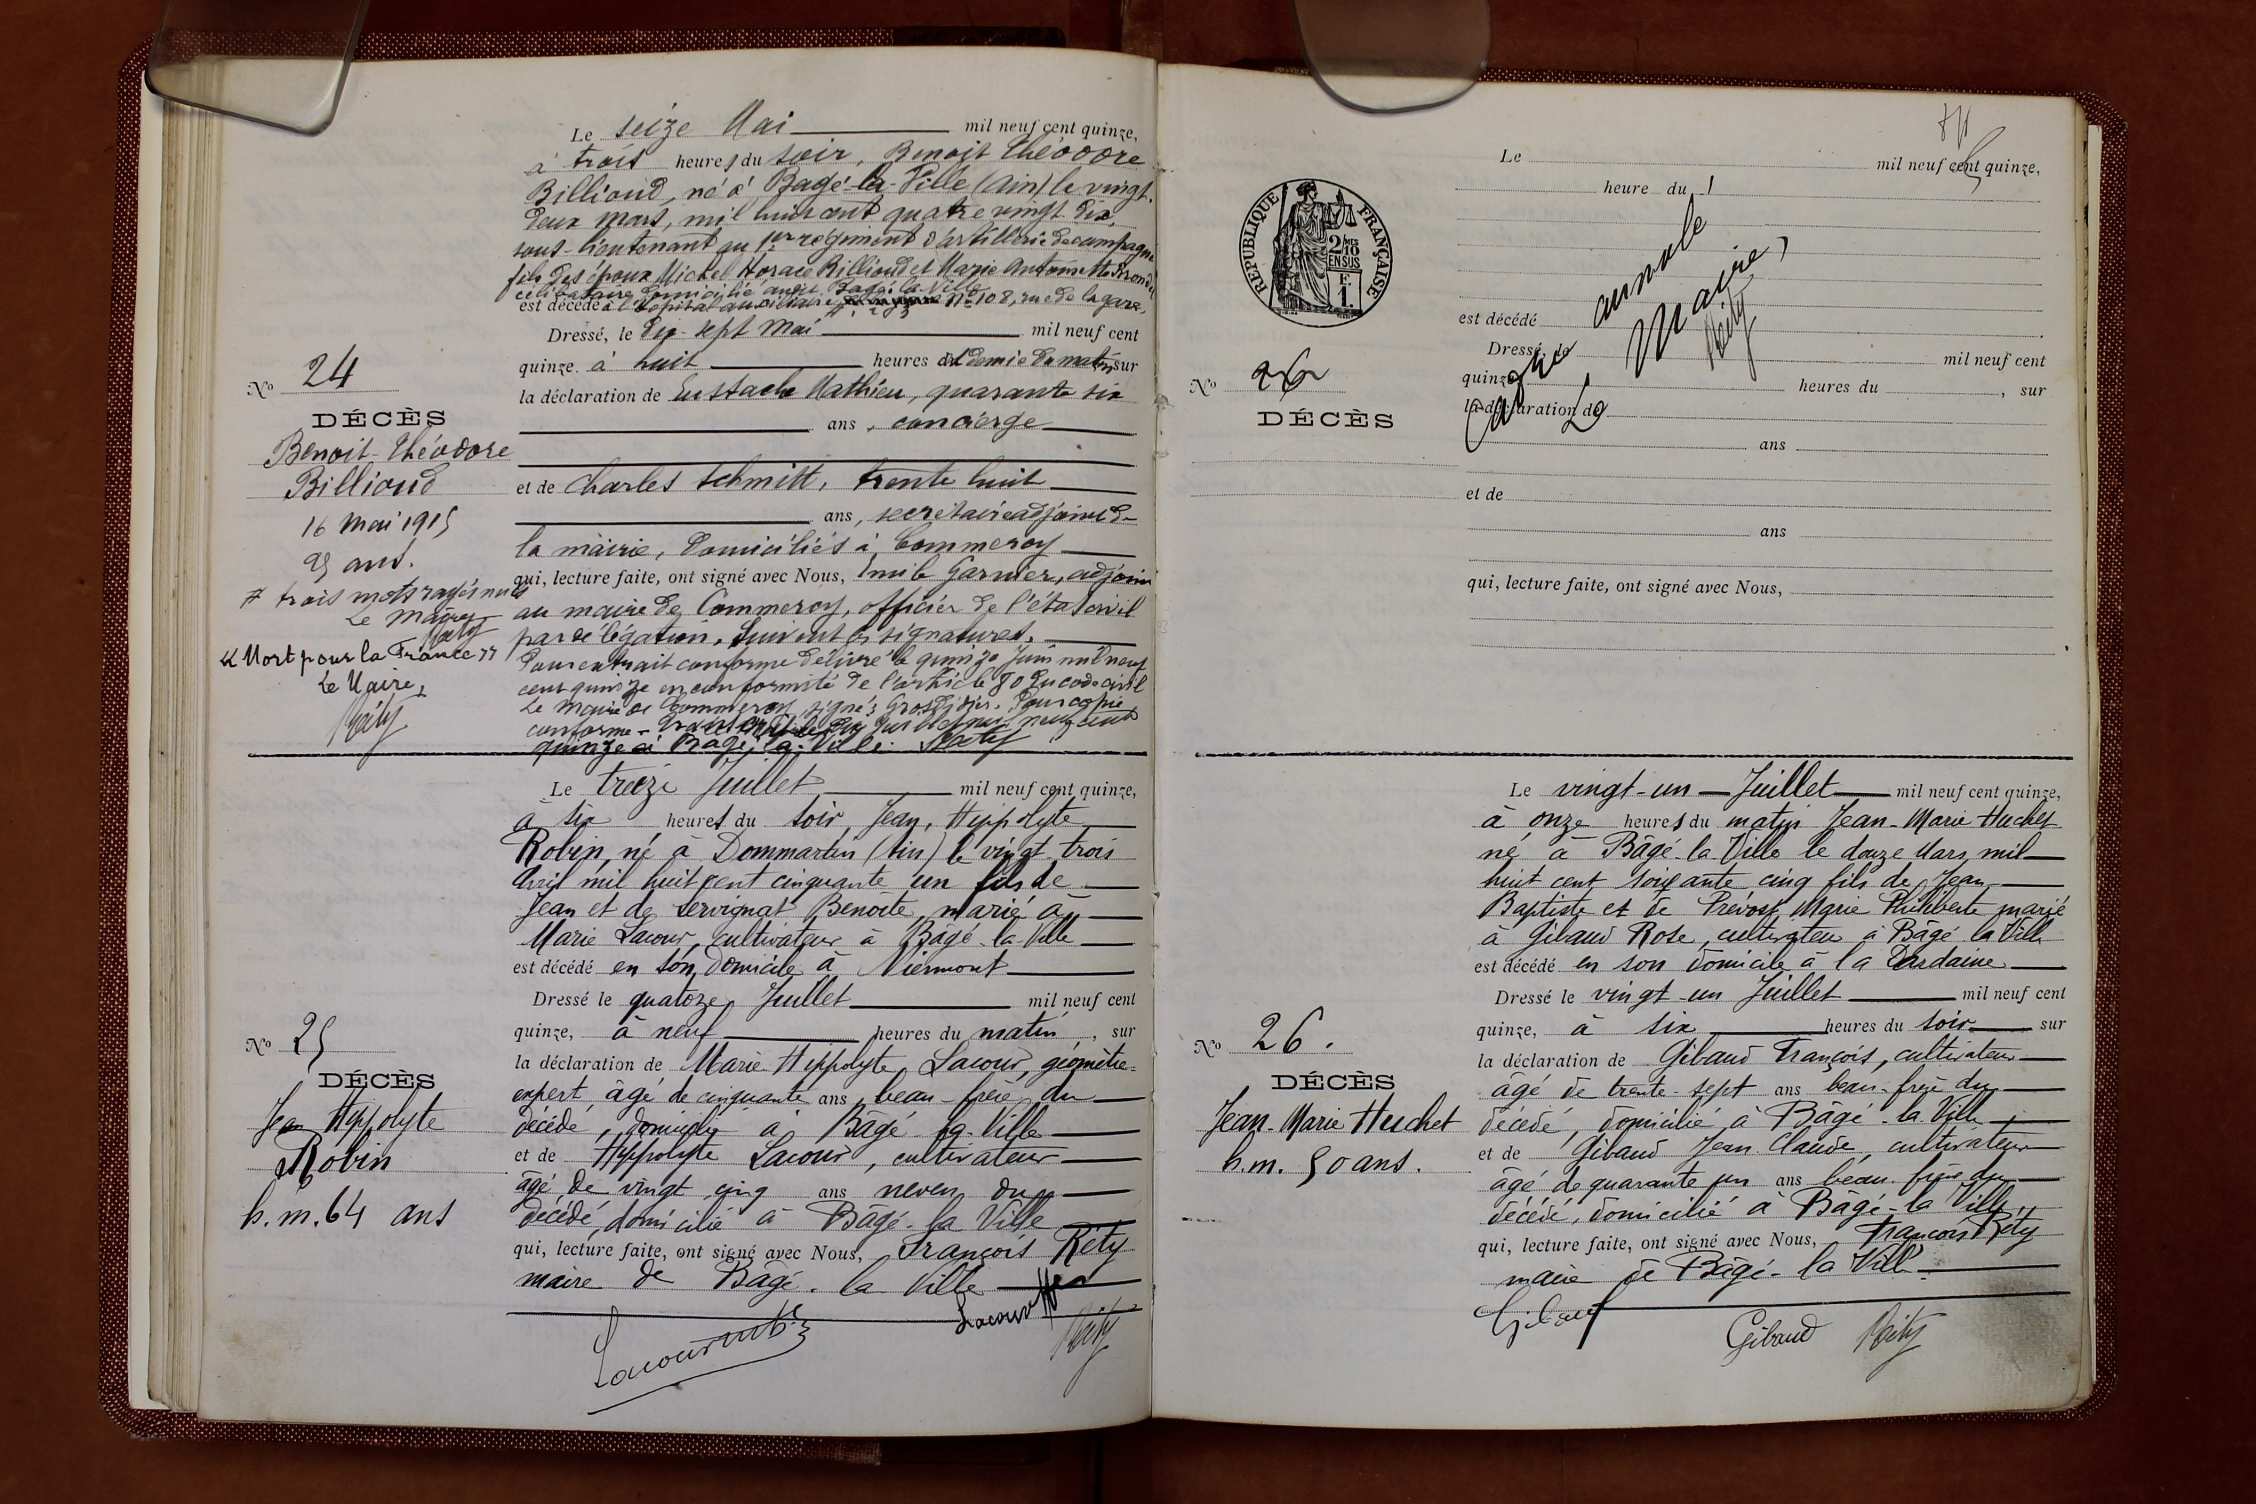 Le seize Mai mil neuf cent quinze,
à trois heures du soir, Benoit Théodore
Billioud, né à Bagé-la-Ville (Ain) le vingt-
deux mars, mil huit cent quatre vingt dix,
sous-lieutenant au 1er régiment d'artillerie de campagne
fils des époux Michel Horace Billioud et Marie Antoinette
célibataire domicilié à Bagé-la-Ville
est décédé à l'hôpital auxiliaire No 108, rue de la gare,
Dressé, le dix-sept Mai mil neuf cent
quinze à huit heures et demie du matin, sur
la déclaration de Eustache Mathieu, quarante six
ans, concierge
et de Charles Schmitt, trente huit
ans, secrétaire adjoint de
la mairie, domiciliés à Commercy
qui, lecture faite, ont signé avec Nous, Emile Garnier, adjoint
au maire de Commercy, officier de l'état civil
par délégation. Suivent les signatures.
Pour extrait conforme délivré le quinze Juin mil neuf
cent quinze en conformité de l'article 80 du code civil
Le Maire de Commercy signé: Grosdidier. Pour copie
conforme - mil neuf cent
quinze à Bagé-la-Ville. Réty
No 24
DÉCÈS
Benoit-Théodore
Billioud
16 Mai 1915
25 ans.
# trois mots rayés nuls
Le Maire
Réty
« Mort pour la France »
Le Maire,
Réty
Le treize Juillet mil neuf cent quinze,
à six heures du soir, Jean, Hippolyte
Robin, né à Dommartin (Ain) le vingt-trois
Avril mil huit cent cinquante un fils de
Jean et de Servignat Benoite, marié à
Marie Lacour, cultivateur à Bâgé-la-Ville
est décédé en son domicile à Niermont
Dressé le quatorze Juillet mil neuf cent
quinze, à neuf heures du matin, sur
la déclaration de Marie Hippolyte Lacour, géomètre-
expert, âgé de cinquante ans, beau-frère du
décédé, domicilié à Bâgé-la-Ville
et de Hippolyte Lacour, cultivateur
âgé de vingt cinq ans neveu du
décédé, domicilié à Bâgé-la Ville
qui, lecture faite, ont signé avec Nous, François Réty
maire de Bâgé-la Ville
Lacour Lacour H Réty
No 25
DÉCÈS
Jean Hippolyte
Robin
h.m. 64 ans
Le mil neuf cent quinze,
heure du
RÉPUBLIQUE FRANÇAISE
2/10 EN SUS
F. 1.
est décédé
Dressé, le mil neuf cent
quinze heures du , sur
la déclaration de
ans
et de
ans
qui, lecture faite, ont signé avec Nous,
annulé
Le Maire,
Réty
No 26
DÉCÈS
Le vingt-un Juillet mil neuf cent quinze,
à onze heures du matin Jean-Marie Huchet
né à Bâgé-la Ville le douze Mars mil
huit cent soixante cinq fils de Jean
Baptiste et de Prévost Marie Philiberte marié
à Gibaud Rose, cultivateur à Bâgé la Ville
est décédé en son domicile à la Dardaine
Dressé le vingt-un Juillet mil neuf cent
quinze, à six heures du soir sur
la déclaration de Gibaud François, cultivateur
âgé de trente-sept ans beau-frère du
décédé, domicilié à Bâgé-la Ville
et de Gibaud Jean Claude, cultivateur
âgé de quarante un ans beau-frère du
décédé, domicilié à Bâgé-la Ville,
qui, lecture faite, ont signé avec Nous, François Réty
maire de Bâgé-la Ville
Gibaud Gibaud Réty
No 26.
DÉCÈS
Jean-Marie Huchet
h.m. 50 ans.